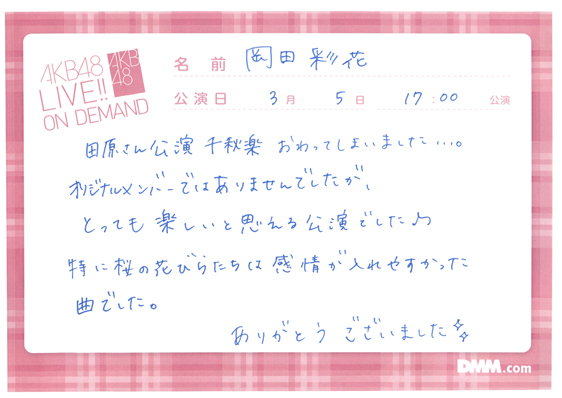 AKB48
LIVE!!
ON DEMAND
AKB
48
名前 岡田彩花
公演日 3月 5日 17:00 公演
田原さん公演 千秋楽 おわってしまいました…。
オリジナルメンバーではありませんでしたが、
とっても 楽しいと思える公演でした♪
特に桜の花びらたちは 感情が入れやすかった
曲でした。
ありがとう ございました✨
DMM.com